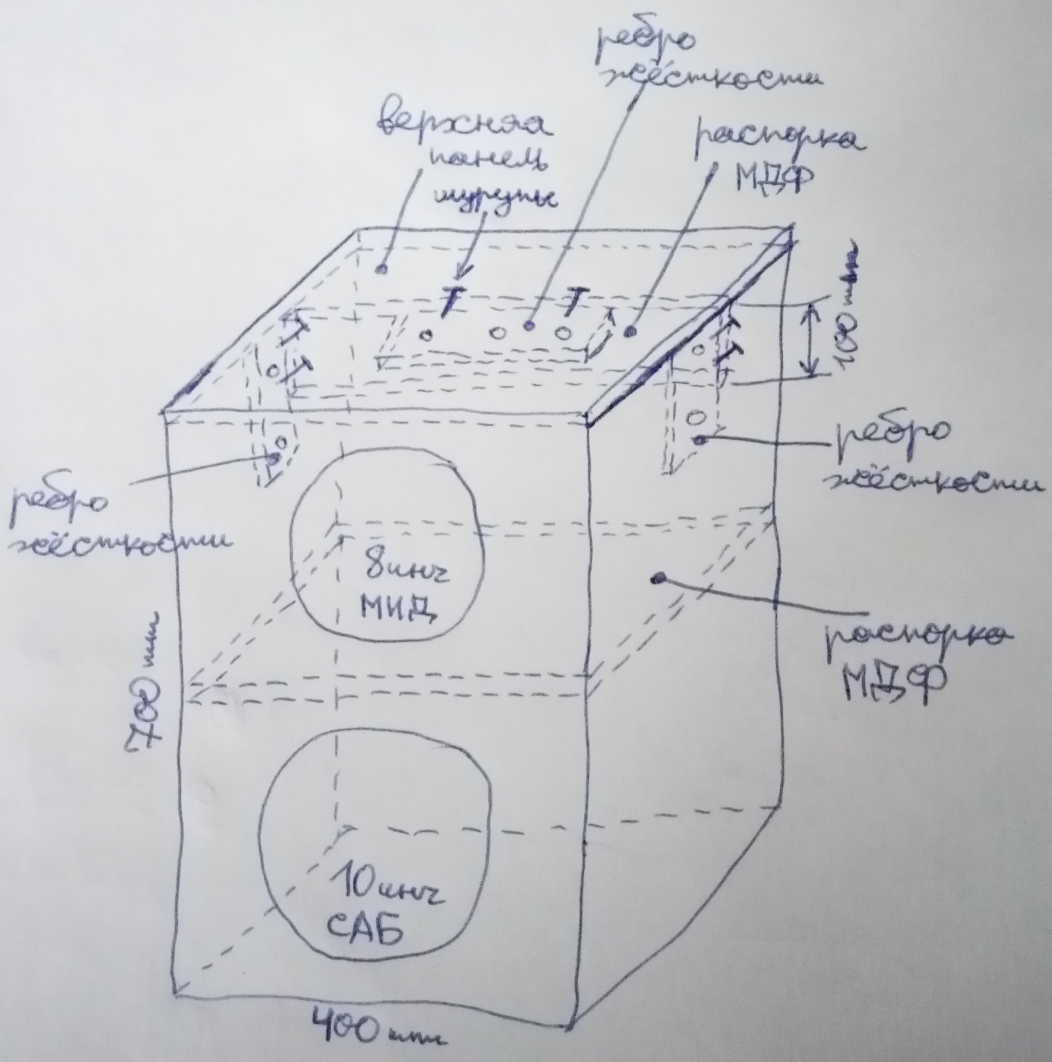 ребро
жёсткости
верхняя
панель
шурупы
распорка
МДФ
100 мм
ребро
жёсткости
ребро
жёсткости
8 инч
МИД
распорка
МДФ
700 мм
10 инч
САБ
400 мм